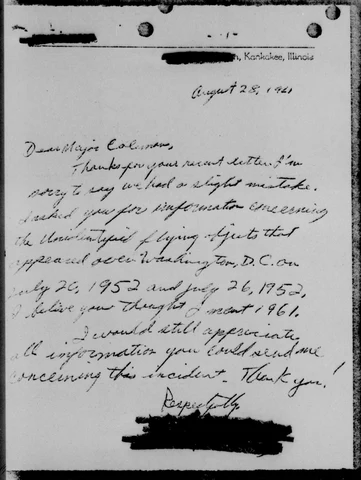 Kankakee, Illinois
August 28, 1961
Dear Major Coleman,
Thanks for your recent letter. I'm
sorry to say we had a slight mistake.
I asked you for information concerning
the Unidentified flying objets that
appeared over Washington, D.C. on
July 20, 1952 and july 26, 1952,
I belive your thought I ment 1961.
I would still appreciate
all information you could send me
concerning this incident. Thank you!
Respectfully